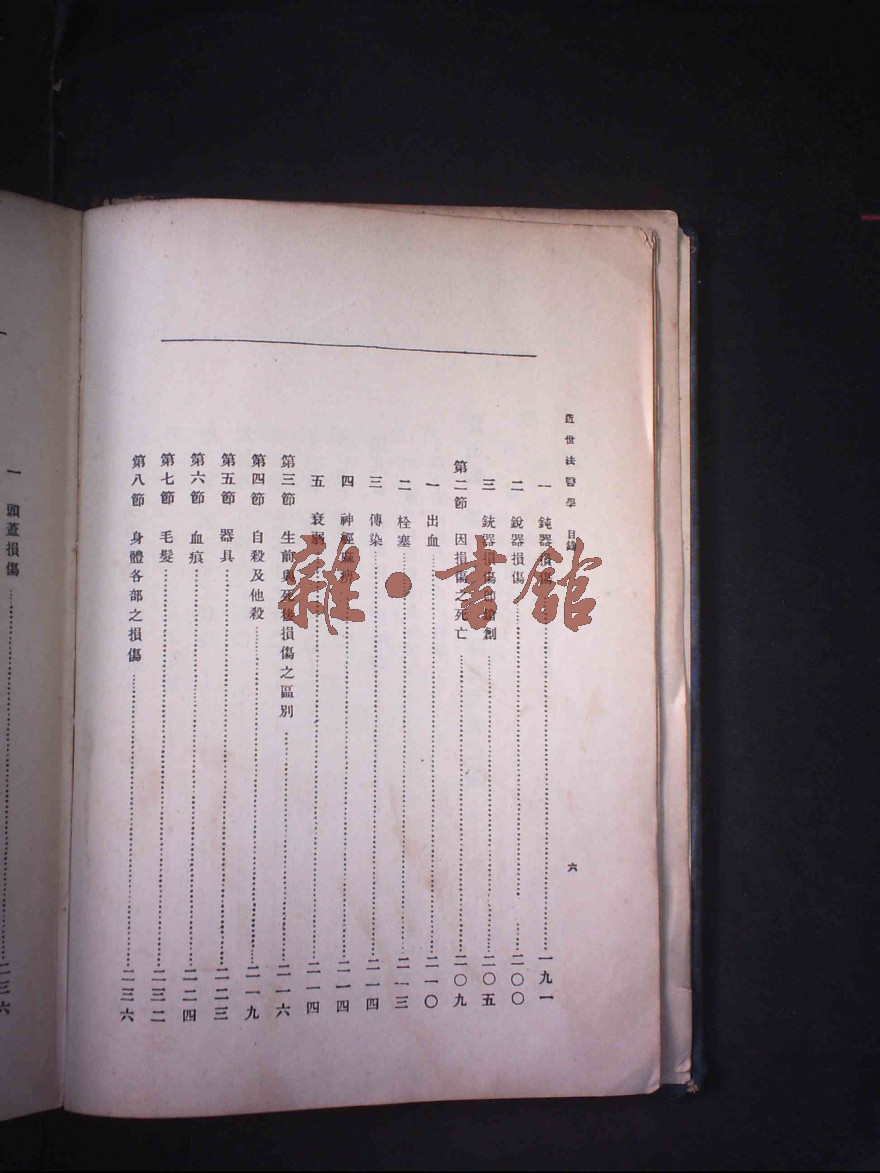 近世法醫學 目錄 六
一 鈍器損傷 一九一
二 銳器損傷 二〇〇
三 銃器損傷 創 二〇五
第二節 因損傷之死亡 二〇九
一 出血 二一〇
二 栓塞 二一三
三 傳染 二一四
四 神經麻痹 二一四
五 衰弱 二一四
第三節 生前與死後損傷之區別 二一六
第四節 自殺及他殺 二一九
第五節 器具 二二三
第六節 血痕 二二四
第七節 毛髮 二三二
第八節 身體各部之損傷 二三六
一 頭蓋損傷 二三六
雜·書館